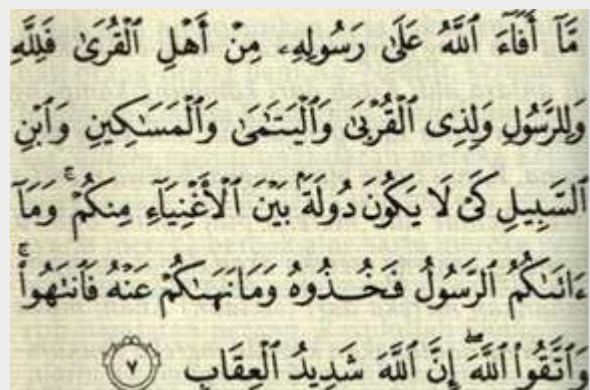 مَّآ أَفَآءَ ٱللَّهُ عَلَىٰ رَسُولِهِۦ مِنْ أَهْلِ ٱلْقُرَىٰ فَلِلَّهِ
وَلِلرَّسُولِ وَلِذِى ٱلْقُرْبَىٰ وَٱلْيَتَٰمَىٰ وَٱلْمَسَٰكِينِ وَٱبْنِ
ٱلسَّبِيلِ كَىْ لَا يَكُونَ دُولَةًۢ بَيْنَ ٱلْأَغْنِيَآءِ مِنكُمْ ۚ وَمَآ
ءَاتَىٰكُمُ ٱلرَّسُولُ فَخُذُوهُ وَمَا نَهَىٰكُمْ عَنْهُ فَٱنتَهُوا۟ ۚ
وَٱتَّقُوا۟ ٱللَّهَ ۖ إِنَّ ٱللَّهَ شَدِيدُ ٱلْعِقَابِ ٧